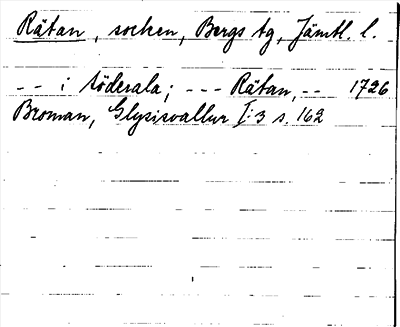 Rätan, socken, Bergs tg, Jämtl. l.
-- i Söderala; --- Rätan, -- 1726
Broman, Glysisvallur I:3 s. 162